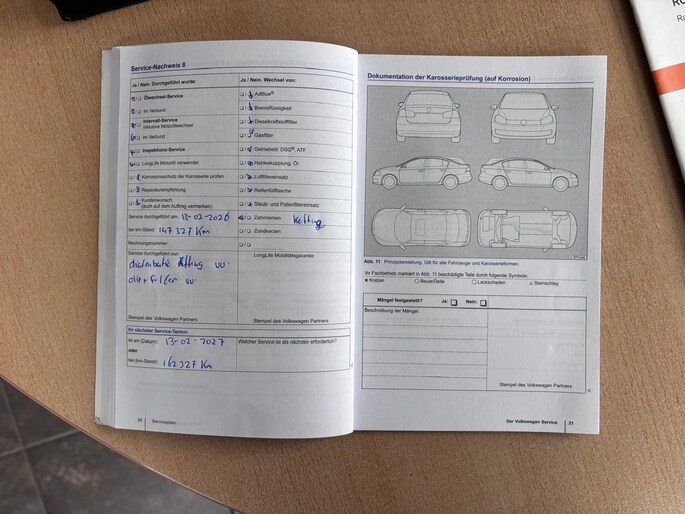 Service-Nachweis 8
Ja / Nein. Durchgeführt wurde:
Ölwechsel-Service
im Verbund
Intervall-Service
inklusive Motorölwechsel
im Verbund
Inspektions-Service
LongLife Motoröl verwendet
Korrosionsschutz der Karosserie prüfen
Reparaturempfehlung
Kundenwunsch
(auch auf dem Auftrag vermerken)
Service durchgeführt am: 13-02-2026
bei km-Stand: 147327 Km
Rechnungsnummer:
Service durchgeführt von:
distributie Ketting vv.
olie + Filter vv.
Stempel des Volkswagen Partners
Ihr nächster Service-Termin
ist am (Datum): 13-02-2027
oder
bei (km-Stand): 162327 Km
Ja / Nein. Wechsel von:
AdBlue®
Bremsflüssigkeit
Dieselkraftstofffilter
Gasfilter
Getriebeöl: DSG®, ATF
Haldexkupplung: Öl
Luftfiltereinsatz
Reifenfüllflasche
Staub- und Pollenfiltereinsatz
Zahnriemen Ketting
Zündkerzen
LongLife Mobilitätsgarantie
Stempel des Volkswagen Partners
Welcher Service ist als nächster erforderlich?
20 Servicedaten
Dokumentation der Karosserieprüfung (auf Korrosion)
Abb. 11 Prinzipdarstellung. Gilt für alle Fahrzeuge und Karosserieformen.
Ihr Fachbetrieb markiert in Abb. 11 beschädigte Teile durch folgende Symbole:
Kratzer Beule/Delle Lackschaden Steinschlag
Mängel festgestellt? Ja: Nein:
Beschreibung der Mängel:
Stempel des Volkswagen Partners
Der Volkswagen Service 21